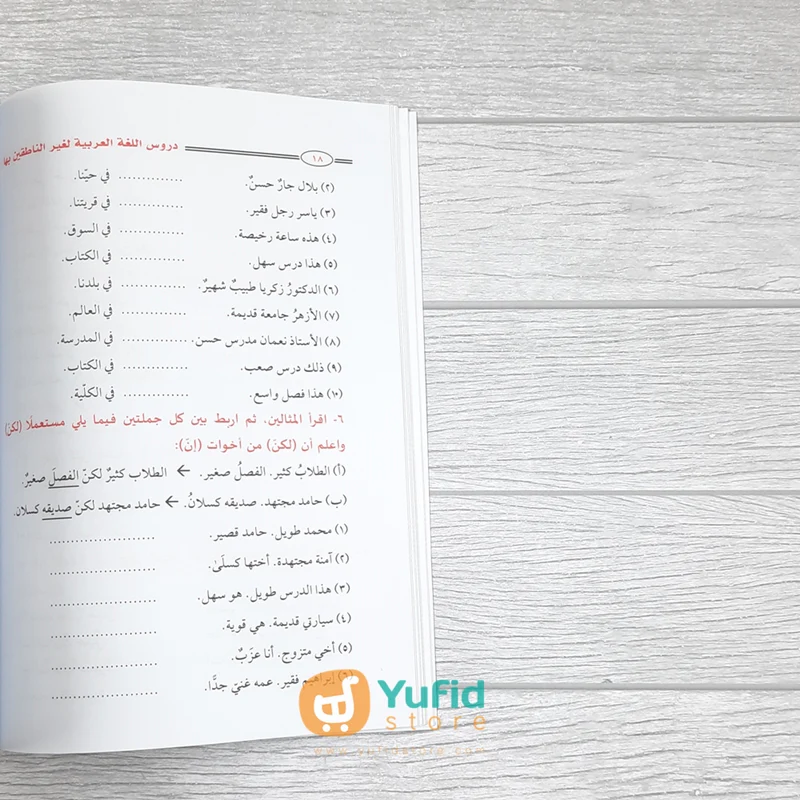 دروس اللغة العربية لغير الناطقين بها ١٨
(٢) بلال جارٌ حسنٌ. ............. في حيّنا.
(٣) ياسر رجل فقير. ............. في قريتنا.
(٤) هذه ساعة رخيصة. ............. في السوق.
(٥) هذا درس سهل. ............. في الكتاب.
(٦) الدكتورُ زكريا طبيبٌ شهيرٌ. ............. في بلدنا.
(٧) الأزهرُ جامعة قديمة. ............. في العالم.
(٨) الأستاذ نعمان مدرس حسن. ............. في المدرسة.
(٩) ذلك درس صعب. ............. في الكتاب.
(١٠) هذا فصل واسع. ............. في الكلّية.
٦- اقرأ المثالين، ثم اربط بين كل جملتين فيما يلي مستعملًا (لكنّ)
واعلم أن (لكنّ) من أخوات (إنّ):
(أ) الطلابُ كثير. الفصلُ صغير. ← الطلاب كثيرٌ لكنّ الفصلَ صغيرٌ.
(ب) حامد مجتهد. صديقه كسلانُ. ← حامد مجتهد لكنّ صديقَه كسلان.
(١) محمد طويل. حامد قصير. .....................
(٢) آمنة مجتهدة. أختها كسلَىٰ. .....................
(٣) هذا الدرس طويل. هو سهل. .....................
(٤) سيارتي قديمة. هي قوية. .....................
(٥) أخي متزوج. أنا عزَبٌ. .....................
(٦) إبراهيم فقير. عمه غنيّ جدًّا. .....................
Yufid
store